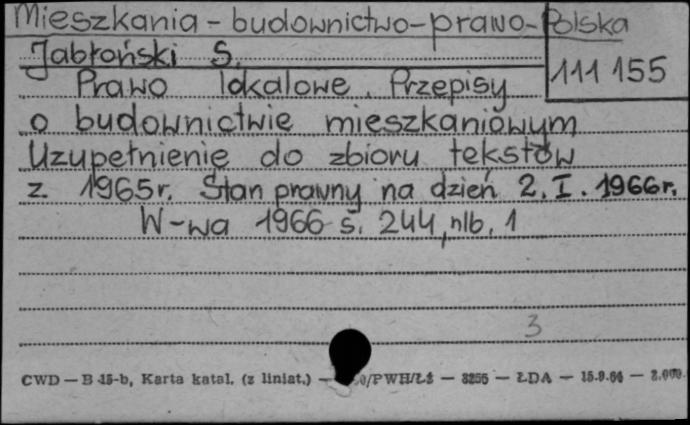 Mieszkania - budownictwo - prawo - Polska
Jabłoński S.
111 155
Prawo lokalowe. Przepisy
o budownictwie mieszkaniowym
Uzupełnienie do zbioru tekstów
z 1965r. Stan prawny na dzień 2.I.1966r.
W-wa 1966 s. 244, nlb. 1
3
CWD — B 15-b, Karta katal. (z liniat.) — /PWH/Łż — 3256 — ŁDA — 15.9.64 — 2.000.